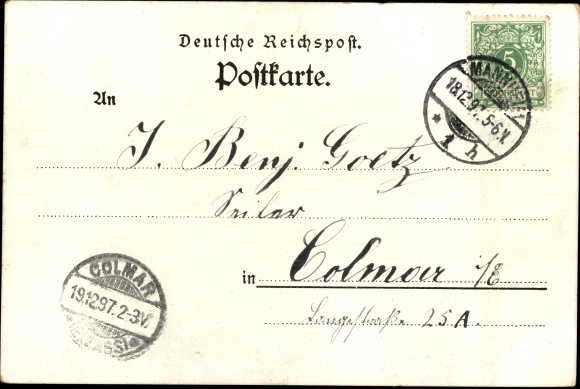 Deutsche Reichspost.
Postkarte.
5
MANNHEIM
18.12.97. 5-6.N.
* 1 h
An
J. Benj. Goetz
Seiler
in Colmar i/E
Langestraße 25A.
COLMAR
19.12.97. 2-3V.